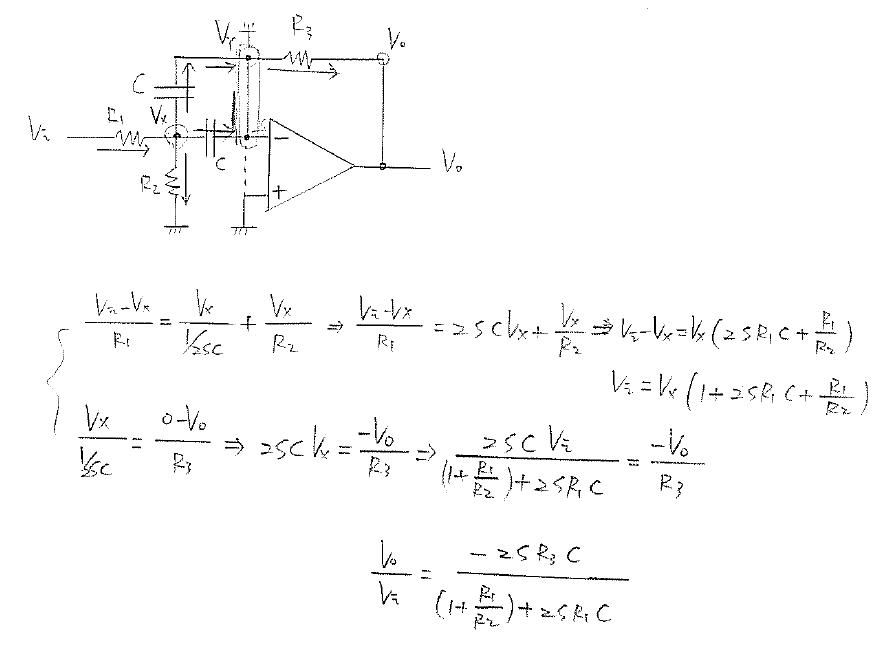 Vy R3 Vo
C
Vi R1 Vx
C
R2
− +
Vo
(Vi-Vx)/R1 = Vx/(1/2SC) + Vx/R2 ⇒ (Vi-Vx)/R1 = 2SCVx + Vx/R2 ⇒ Vi-Vx = Vx(2SR1C + R1/R2)
Vi = Vx(1+2SR1C + R1/R2)
Vx/(1/2SC) = (0-Vo)/R3 ⇒ 2SCVx = -Vo/R3 ⇒ 2SC Vi/((1+R1/R2)+2SR1C) = -Vo/R3
Vo/Vi = -2SR3C/((1+R1/R2)+2SR1C)